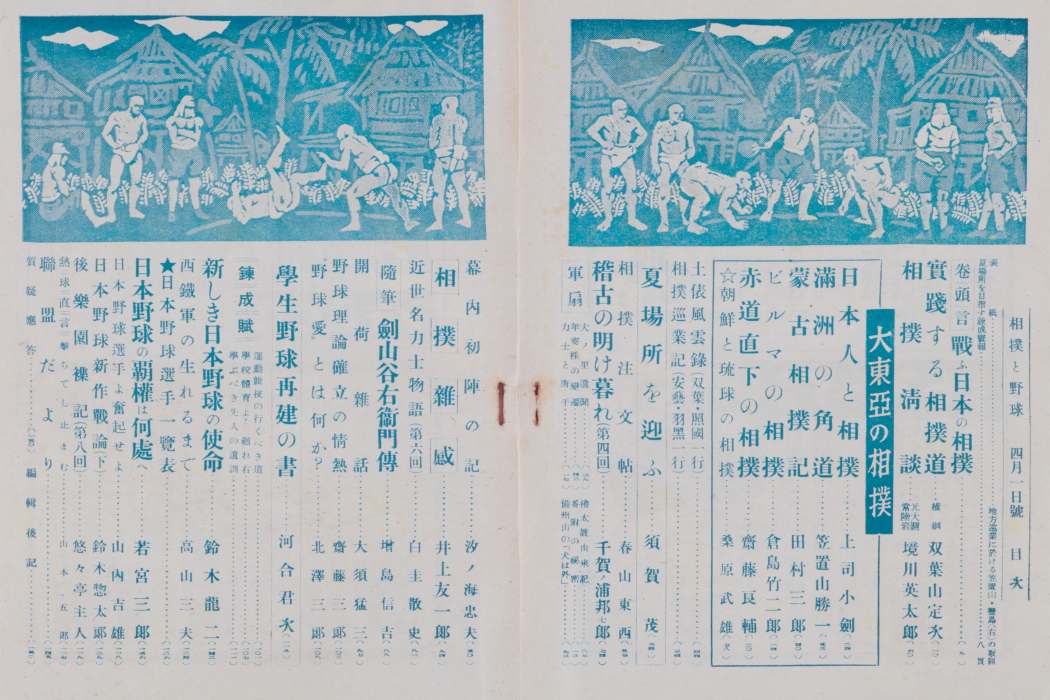 相撲と野球 四月一日號 目次
表紙
巻頭言 戰ふ日本の相撲
實踐する相撲道 横綱 双葉山定次
相撲淸談 元大關 常陸岩 境川英太郎
大東亞の相撲
日本人と相撲 上司小劍
滿洲の角道 笠置山勝一
蒙古相撲記 田村三郎
ビルマの相撲 倉島竹二郎
赤道直下の相撲 齋藤良輔
☆朝鮮と琉球の相撲 桑原武雄
土俵風雲錄(双葉・照國一行)
相撲巡業記(安藝・羽黑一行)
夏場所を迎ふ 須賀茂
相撲注文帖 春山東西
稽古の明け暮れ(第四回) 千賀ノ浦邦七郎
軍扇
幕内初陣の記 汐ノ海忠夫
相撲雜感 井上友一郎
近世名力士物語(第六回) 白圭散史
隨筆 劍山谷右衞門傳 增島信吉
開荷雜話 大須猛三
野球理論確立の情熱 齋藤三郎
"野球愛"とは何か? 北澤三郎
學生野球再建の書 河合君次
鍊成賦
運動競技の行くべき道
學校體育よ!廻れ右
學ぶべき先人の遺訓
新しき日本野球の使命 鈴木龍二
西鐵軍の生れるまで 高山三夫
★日本野球選手一覽表
日本野球の覇權は何處へ 若宮三郎
日本野球選手よ奮起せよ 山内吉雄
日本野球新作戰論(下) 鈴木惣太郎
後樂園襍記(第八回) 悠々亭主人
熱球直言 擊ちてし止まむ 山本五郎
聯盟だより
質疑應答 編輯後記